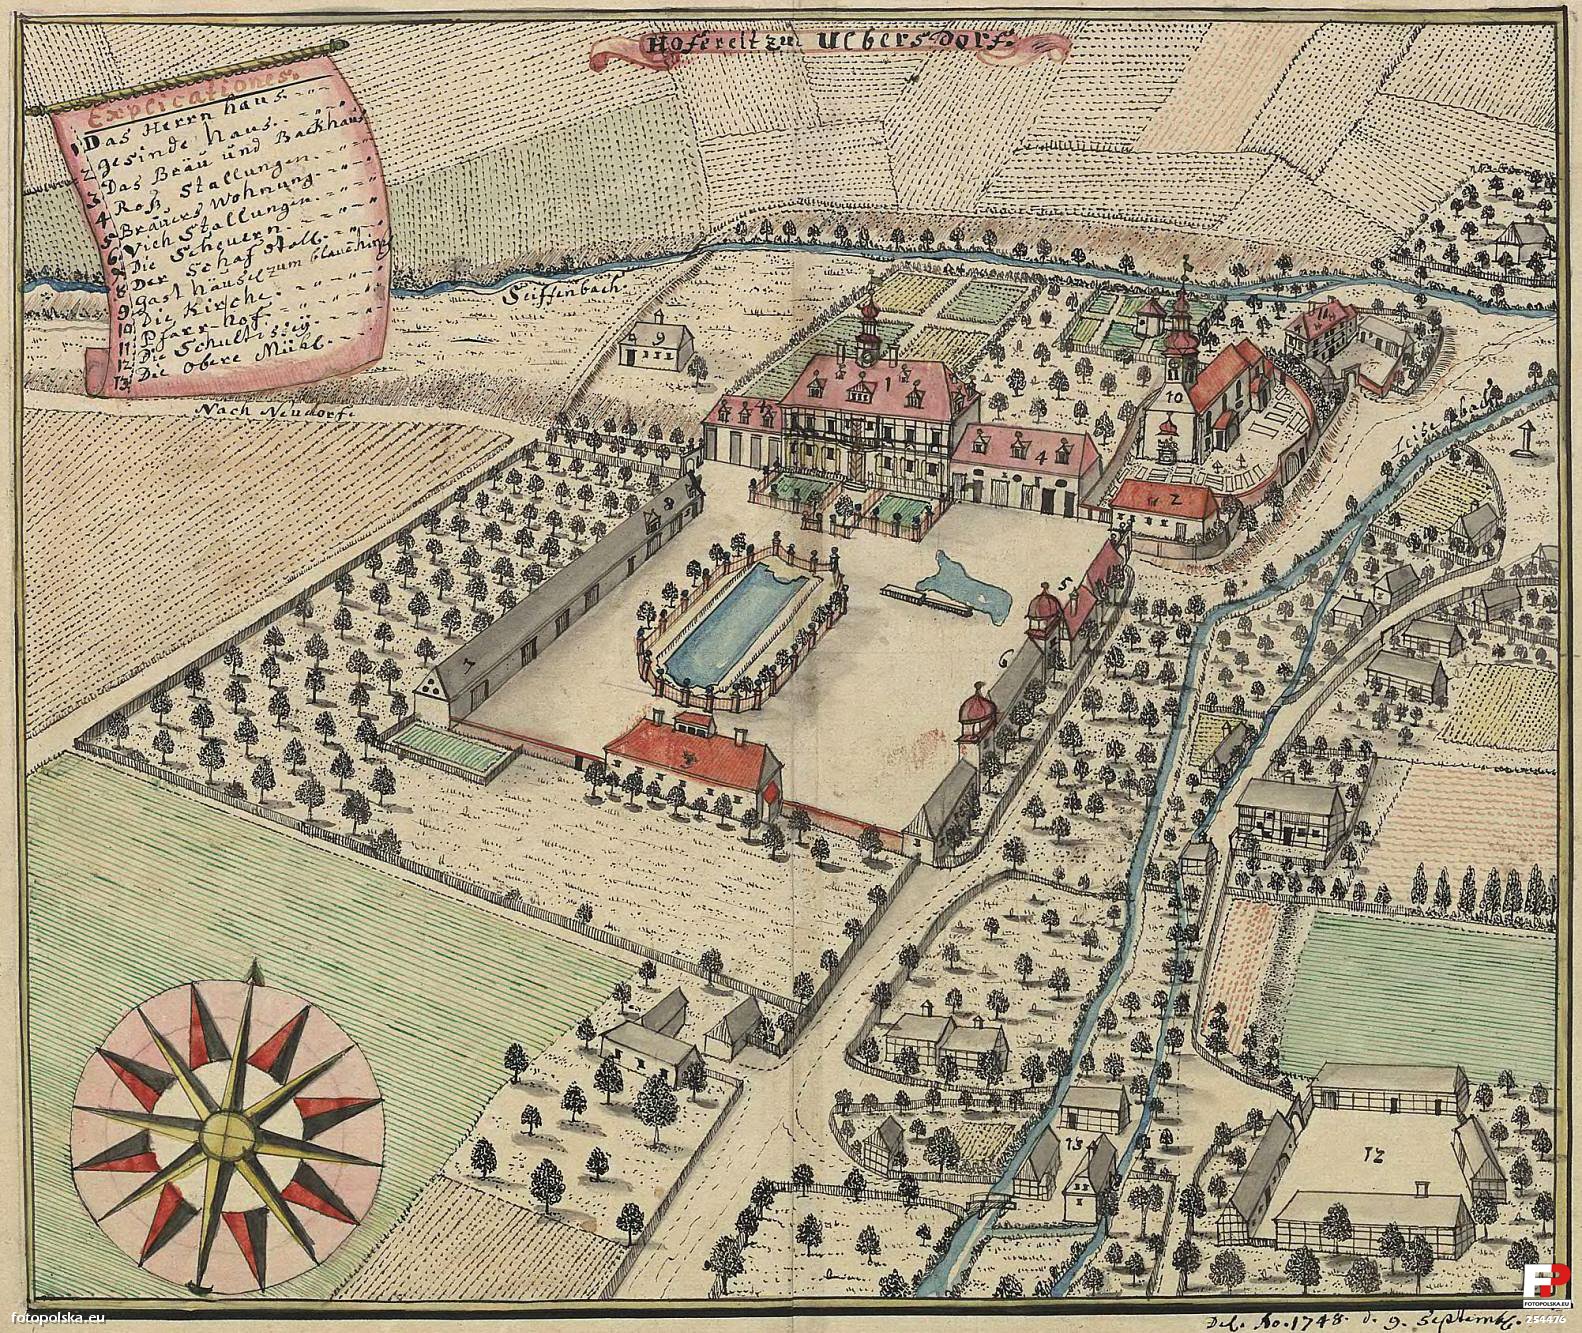 Hofereit zu Uebersdorf.
Explicationes.
1 Das Herrn haus.
2 Gesinde haus.
3 Das Bräu und Backhaus
4 Roß Stallungen.
5 Bräuers Wohnung.
6 Vieh Stallungen
7 Die Scheuern
8 Der Schaf Stall.
9 Gast häusel zum blauen
10 Die Kirche.
11 Pfarr-hof
12 Die Schultisey
13 Die Obere Mühl.
Seiffenbach.
Nach Neudorf.
9
1
4
4
10
11
2
8
5
7
6
3
13
12
Del. Ao. 1748. d. 9. Septemb.
fotopolska.eu
FP
FOTOPOLSKA.EU
254476